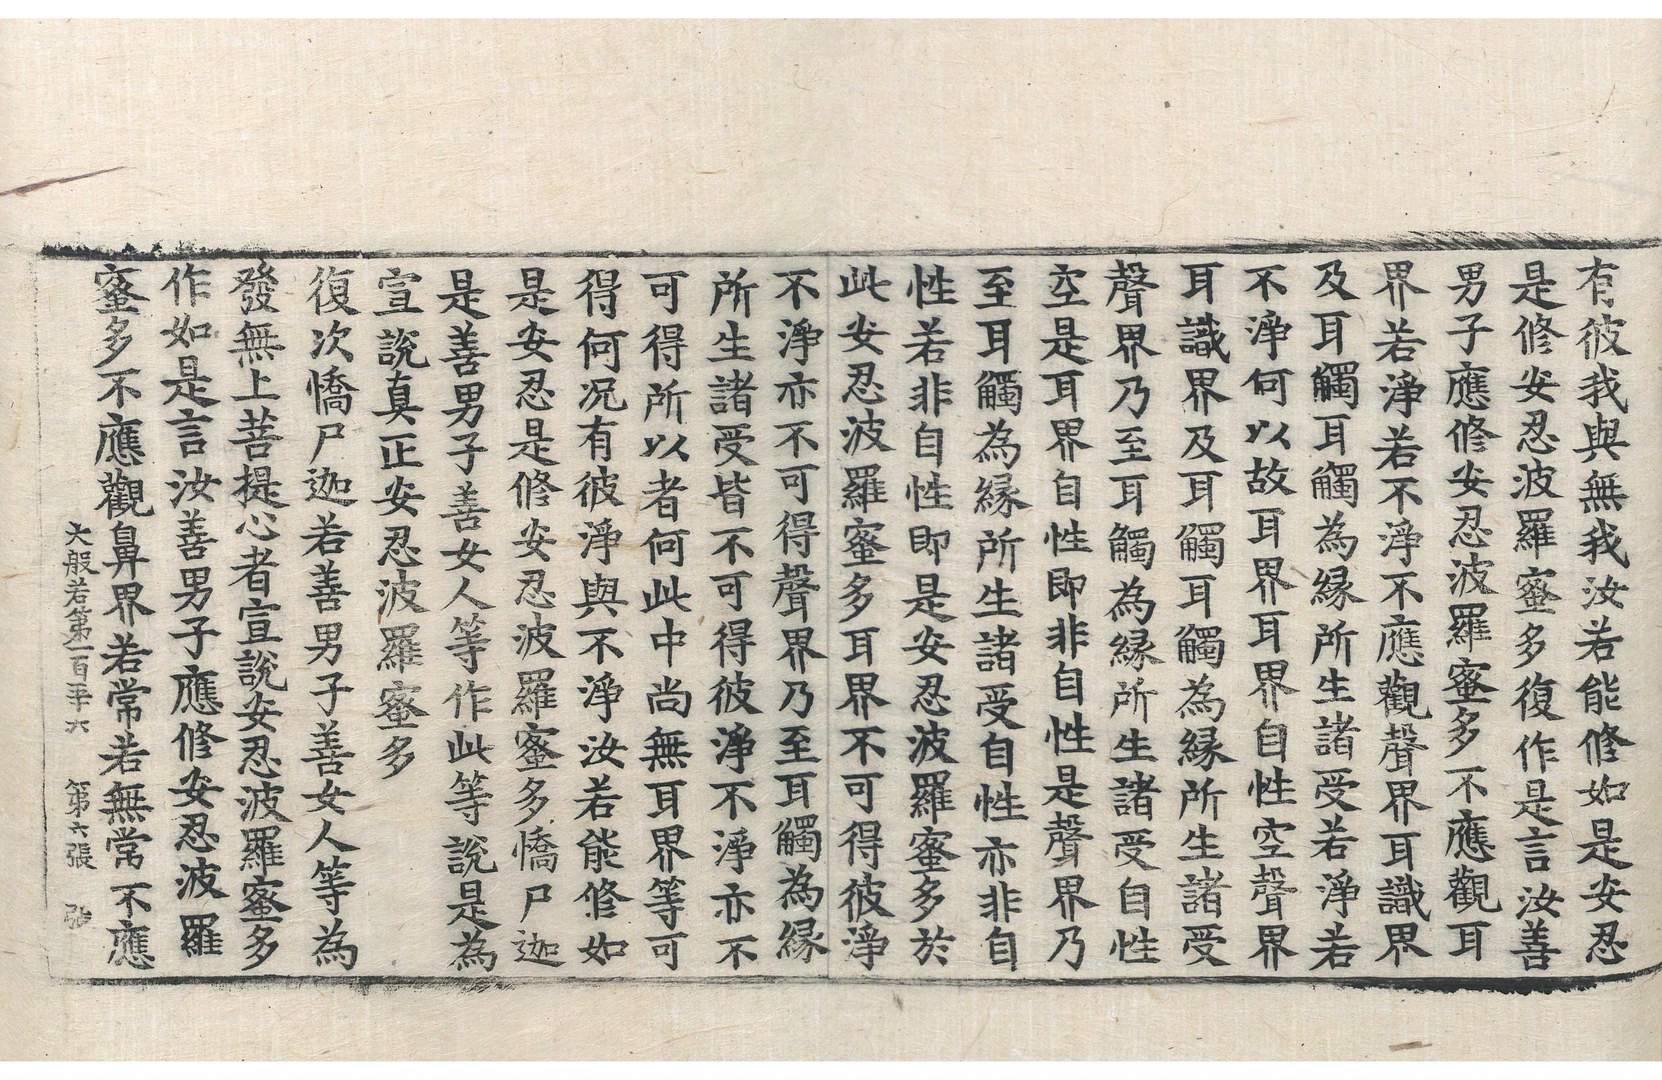 有彼我與無我汝若能修如是安忍
是修安忍波羅蜜多復作是言汝善
男子應修安忍波羅蜜多不應觀耳
界若淨若不淨不應觀聲界耳識界
及耳觸耳觸為緣所生諸受若淨若
不淨何以故耳界耳界自性空聲界
耳識界及耳觸耳觸為緣所生諸受
聲界乃至耳觸為緣所生諸受自性
空是耳界自性即非自性是聲界乃
至耳觸為緣所生諸受自性亦非自
性若非自性即是安忍波羅蜜多於
此安忍波羅蜜多耳界不可得彼淨
不淨亦不可得聲界乃至耳觸為緣
所生諸受皆不可得彼淨不淨亦不
可得所以者何此中尚無耳界等可
得何况有彼淨與不淨汝若能修如
是安忍是修安忍波羅蜜多憍尸迦
是善男子善女人等作此等說是為
宣說真正安忍波羅蜜多
復次憍尸迦若善男子善女人等為
發無上菩提心者宣說安忍波羅蜜多
作如是言汝善男子應修安忍波羅
蜜多不應觀鼻界若常若無常不應
大般若第一百五十六 第六張 弘